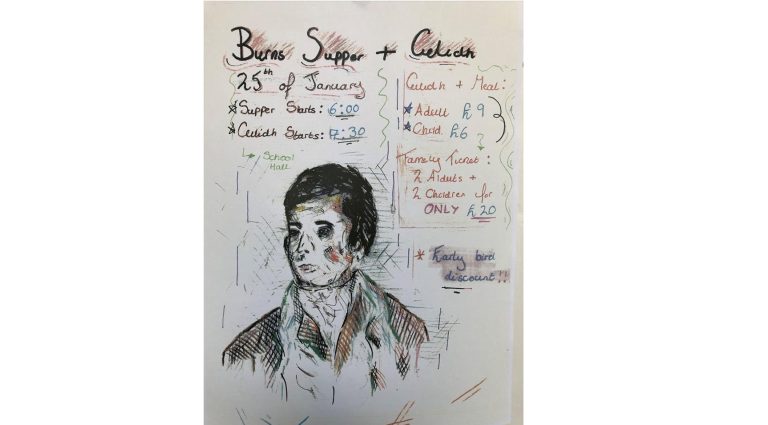 Burns Supper + Ceilidh
25th of January
Supper Starts: 6:00
Ceilidh Starts: 7:30
School
Hall
Ceilidh + Meal:
Adult £9
Child £6
Family Ticket:
2 Adults +
2 Children for
ONLY £20
Early bird
discount!!